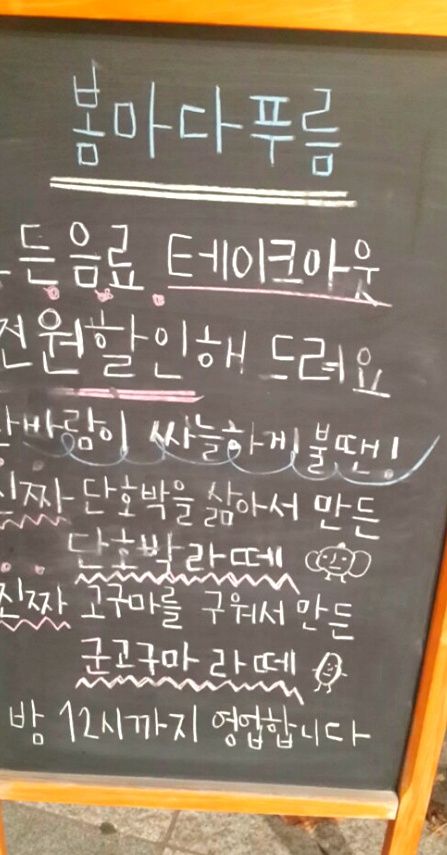 봄마다푸름
든음료 테이크아웃
원할인해 드려요
바람이 싸늘하게 불땐!
진짜 단호박을 삶아서 만든
단호박라떼
진짜 고구마를 구워서 만든
군고구마 라떼
밤 12시까지 영업합니다